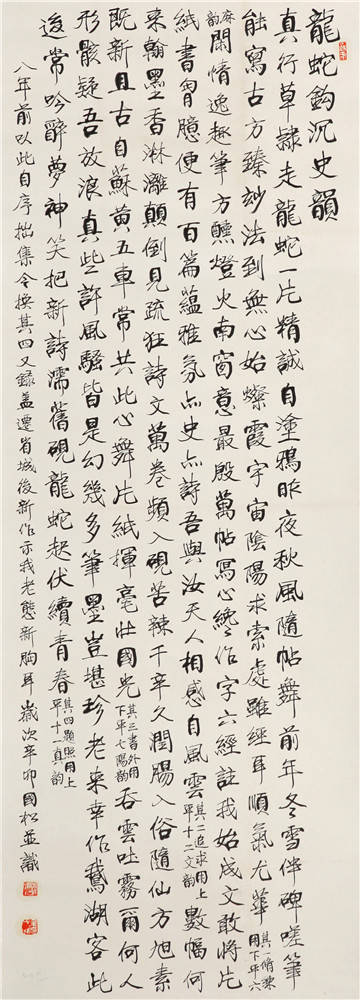 龍蛇鈎沉史韻
真行草隸走龍蛇一片精誠自塗鴉昨夜秋風隨帖舞前年冬雪伴碑嗟筆
能寫古方臻妙法到無心始燦霞宇宙陰陽求索處雖經耳順氣尤華其一脩琢用下平六
麻韻閑情逸趣筆方醺燈火南窗意最殷萬帖寫心纔作字六經註我始成文敢將片
紙書胷臆便有百篇蘊雅氛亦史亦詩吾與汝天人相感自風雲其二追求用上平十二文韻數幅何
來翰墨香淋灕顛倒見疏狂詩文萬卷頻入硯苦辣千辛久潤腸入俗隨仙方旭素
既新且古自蘇黃五車常共此心舞片紙揮毫壯國光其三書外用下平七陽韻吞雲吐霧爾何人
形骸疑吾放浪真些許風騷皆是幻幾多筆墨豈堪珍老來幸作鵞湖客此
後常吟辭夢神笑把新詩濡舊硯龍蛇起伏續青春其四題照用上平十一真韻
八年前以此自序拙集今換其四又錄蓋遷省城後新作示我老態新胸耳歲次辛卯國松並識